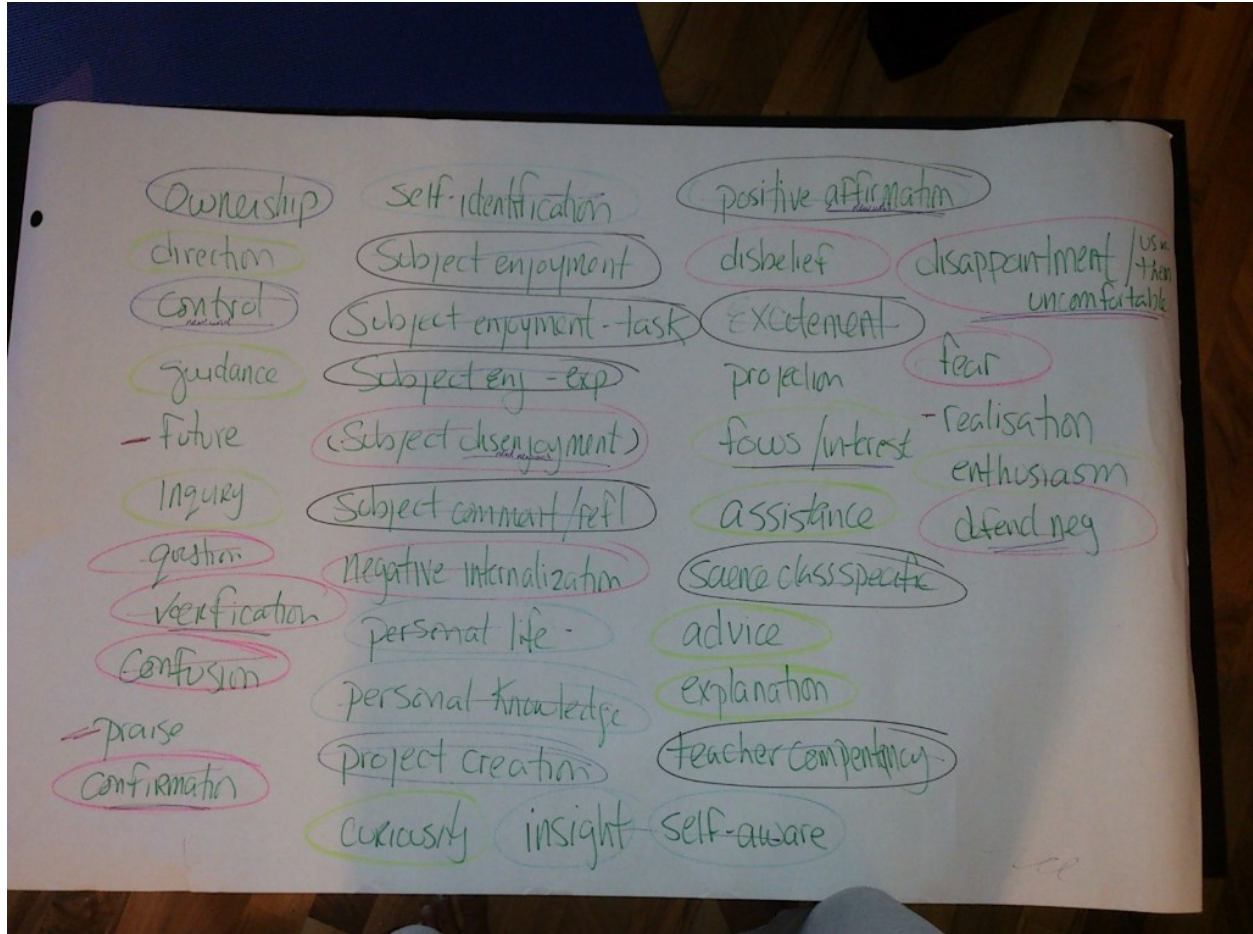 Ownership
direction
control
guidance
- Future
Inquiry
question
verification
Confusion
- praise
confirmation
self-identification
Subject enjoyment
Subject enjoyment - task
Subject enj - exp
(Subject disenjoyment)
Subject comment/refl
negative internalization
personal life -
personal knowledge
project creation
curiousity
insight
self-aware
positive affirmation
disbelief
Excitement
projection
focus/interest
assistance
science class specific
advice
explanation
teacher compentancy
disappointment / us v. them
uncomfortable
fear
- realisation
enthusiasm
defend neg